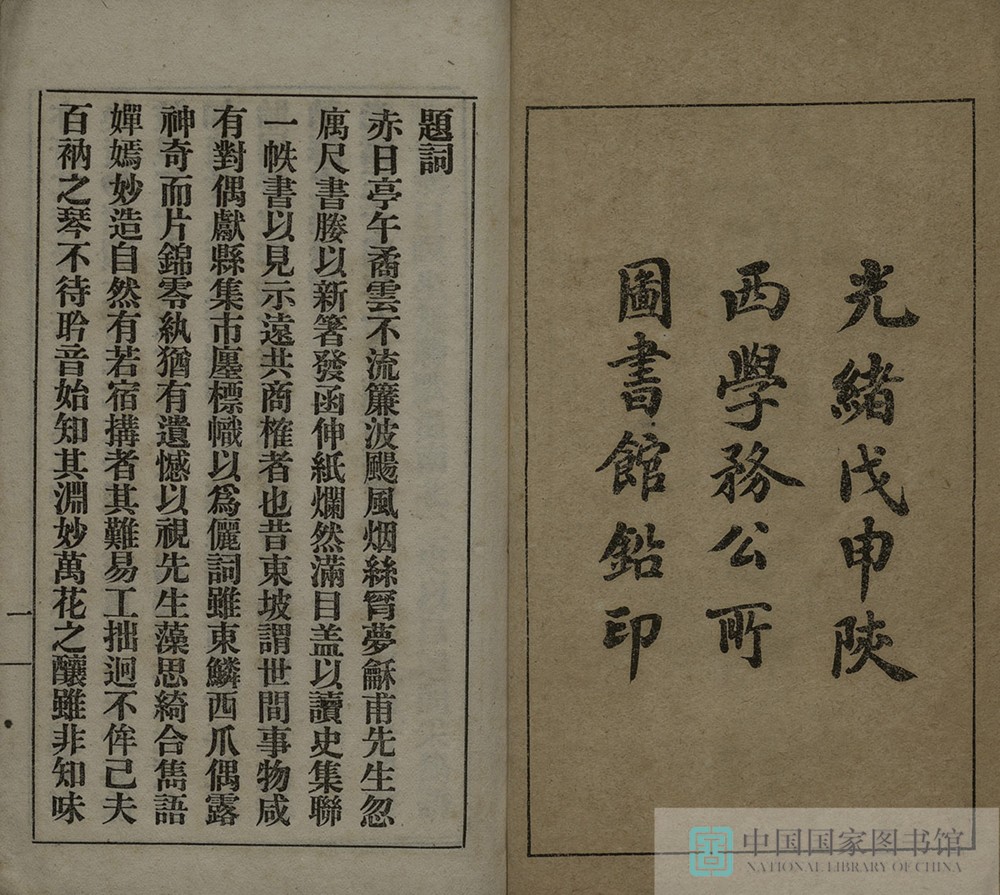 光緒戊申陝
西學務公所
圖書館鉛印
題詞
赤日亭午矞雲不流簾波颺風烟絲罥夢龢甫先生忽
寓尺書媵以新箸發函伸紙爛然滿目盖以讀史集聯
一帙書以見示遠共商榷者也昔東坡謂世間事物咸
有對偶獻縣集市廛標幟以爲儷詞雖東鱗西爪偶露
神奇而片錦零紈猶有遺憾以視先生藻思綺合雋語
嬋嫣妙造自然有若宿搆者其難易工拙迥不侔已夫
百衲之琴不待聆音始知其淵妙萬花之釀雖非知味
一
中国国家图书馆
NATIONAL LIBRARY OF CHINA